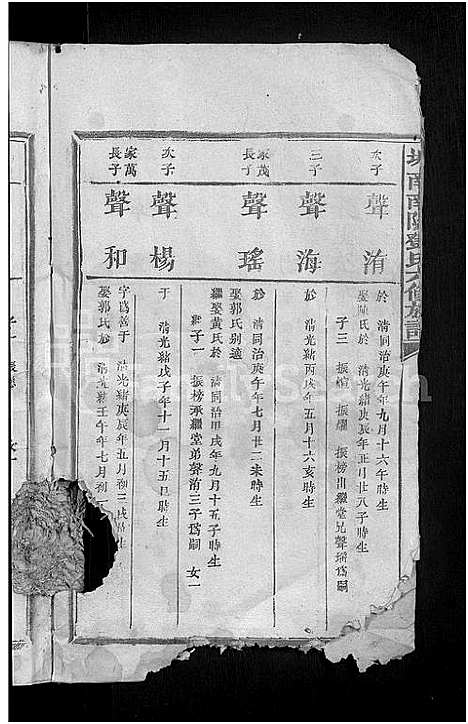 南陽鄧氏六修族譜
次子
聲洧
於 清同治庚午年九月十六午時生
娶陳氏於 清光緒庚辰年正月廿八子時生
子三 振楦 振耀 振榜出繼堂兄聲瑤爲嗣
三子
聲海
於 清光緒丙戌年五月十六亥時生
家茂
長子
聲瑤
於 清同治庚午年七月廿二未時生
娶郭氏別適
繼娶黃氏於 清同治甲戌年九月十五子時生
繼子一 振榜承繼堂弟聲洧三子爲嗣 女一
次子
聲楊
于 清光緒戊子年十一月十五巳時生
家萬
長子
聲和
字爲善于 清光緒庚辰年五月初三戌時
娶郭氏於 清光緒壬午年七月初一